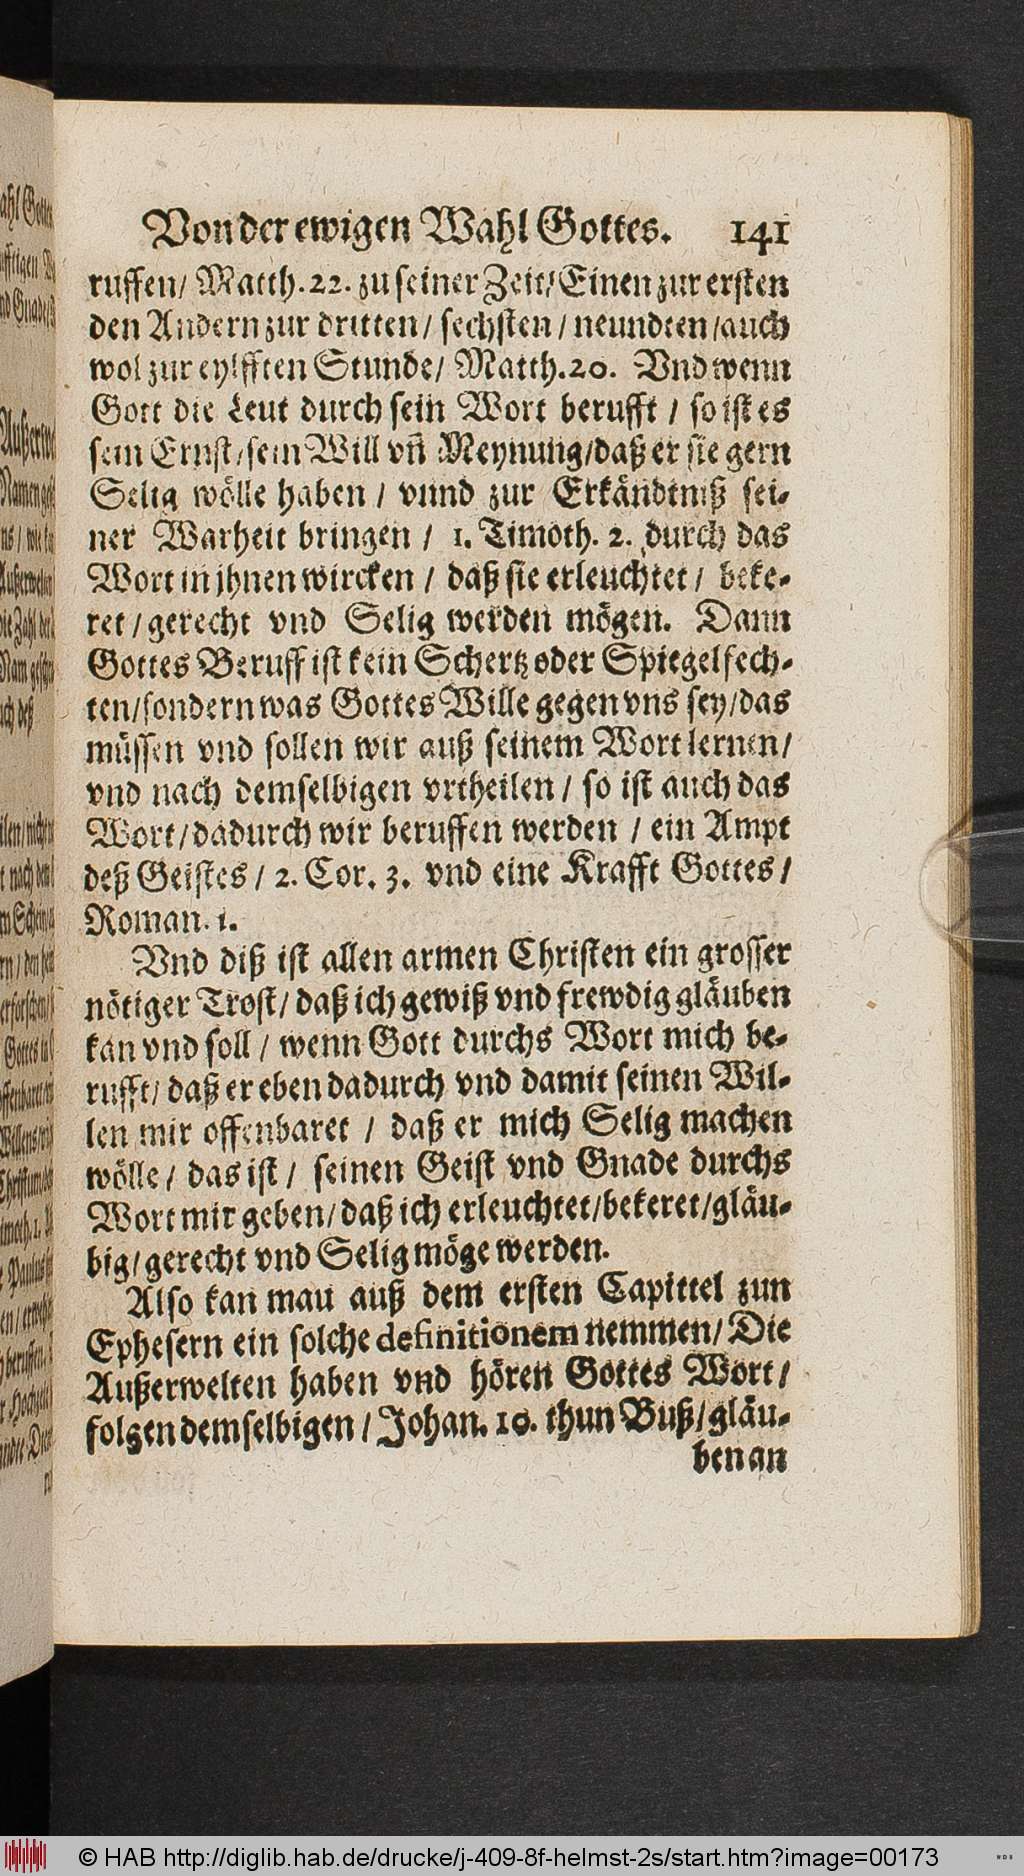 Von der ewigen Wahl Gottes. 141
ruffen/ Matth. 22. zu seiner Zeit/ Einen zur ersten
den Andern zur dritten/ sechsten/ neundten/ auch
wol zur eylfften Stunde/ Matth. 20. Vnd wenn
Gott die Leut durch sein Wort berufft/ so ist es
sein Ernst/ sein Will vñ Meynung/ daß er sie gern
Selig wölle haben/ vnnd zur Erkändtniß sei-
ner Warheit bringen/ 1. Timoth. 2. durch das
Wort in jhnen wircken/ daß sie erleuchtet/ beke-
ret/ gerecht vnd Selig werden mögen. Dann
Gottes Beruff ist kein Schertz oder Spiegelfech-
ten/ sondern was Gottes Wille gegen vns sey/ das
müssen vnd sollen wir auß seinem Wort lernen/
vnd nach demselbigen vrtheilen/ so ist auch das
Wort/ dadurch wir beruffen werden/ ein Ampt
deß Geistes/ 2. Cor. 3. vnd eine Krafft Gottes/
Roman. 1.
Vnd diß ist allen armen Christen ein grosser
nötiger Trost/ daß ich gewiß vnd frewdig gläuben
kan vnd soll/ wenn Gott durchs Wort mich be-
rufft/ daß er eben dadurch vnd damit seinen Wil-
len mir offenbaret/ daß er mich Selig machen
wölle/ das ist/ seinen Geist vnd Gnade durchs
Wort mir geben/ daß ich erleuchtet/ bekeret/ gläu-
big/ gerecht vnd Selig möge werden.
Also kan mau auß dem ersten Capittel zun
Ephesern ein solche definitionem nemmen/ Die
Außerwelten haben vnd hören Gottes Wort/
folgen demselbigen/ Johan. 10. thun Buß/ gläu-
ben an
© HAB http://diglib.hab.de/drucke/j-409-8f-helmst-2s/start.htm?image=00173